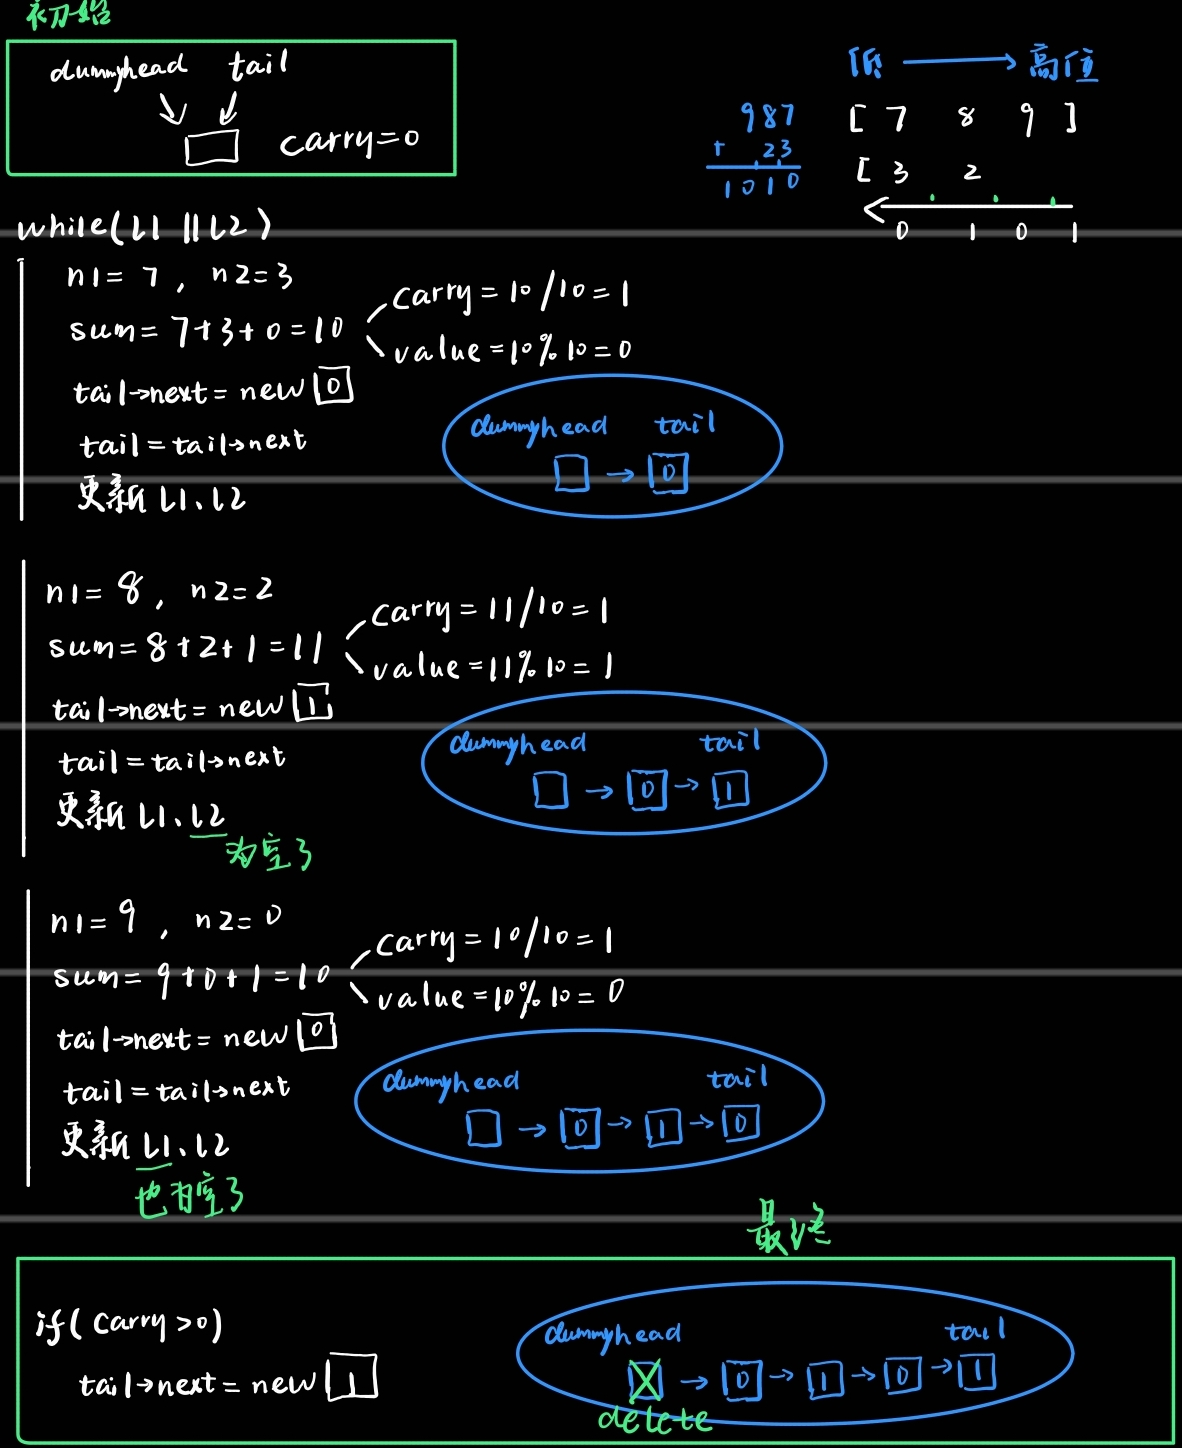 初始
dummyhead tail
carry=0
低 → 高位
987
+ 23
1010
[ 7 8 9 ]
[ 3 2
0 1 0 1
while(L1 || L2)
n1= 7, n2=3
sum= 7+3+0=10
carry=10/10=1
value=10%10=0
tail->next= new 0
tail=tail->next
更新 L1、L2
dummyhead tail
→ 0
n1= 8, n2=2
sum=8+2+1=11
carry=11/10=1
value=11%10=1
tail->next= new 1
tail=tail->next
更新 L1、L2
为空了
dummyhead tail
→ 0 → 1
n1=9, n2=0
sum= 9+0+1=10
carry=10/10=1
value=10%10=0
tail->next= new 0
tail=tail->next
更新 L1、L2
也为空了
dummyhead tail
→ 0 → 1 → 0
最终
if( carry>0)
tail->next= new 1
dummyhead tail
→ 0 → 1 → 0 → 1
delete